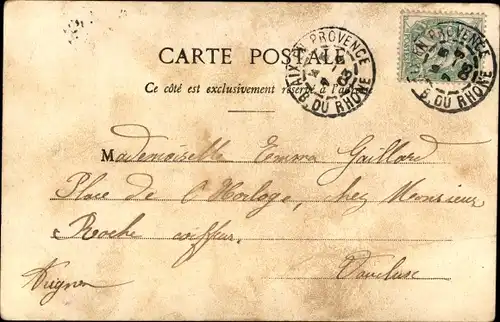 CARTE POSTALE
Ce côté est exclusivement réservé à l'ad
AIX EN PROVENCE
B. DU RHÔNE
03
AIX EN PROVENCE
B. DU RHÔNE
Mademoiselle Emma Gaillard
Place de l'Horloge, chez Monsieur
Roche coiffeur.
Avignon
Vaucluse